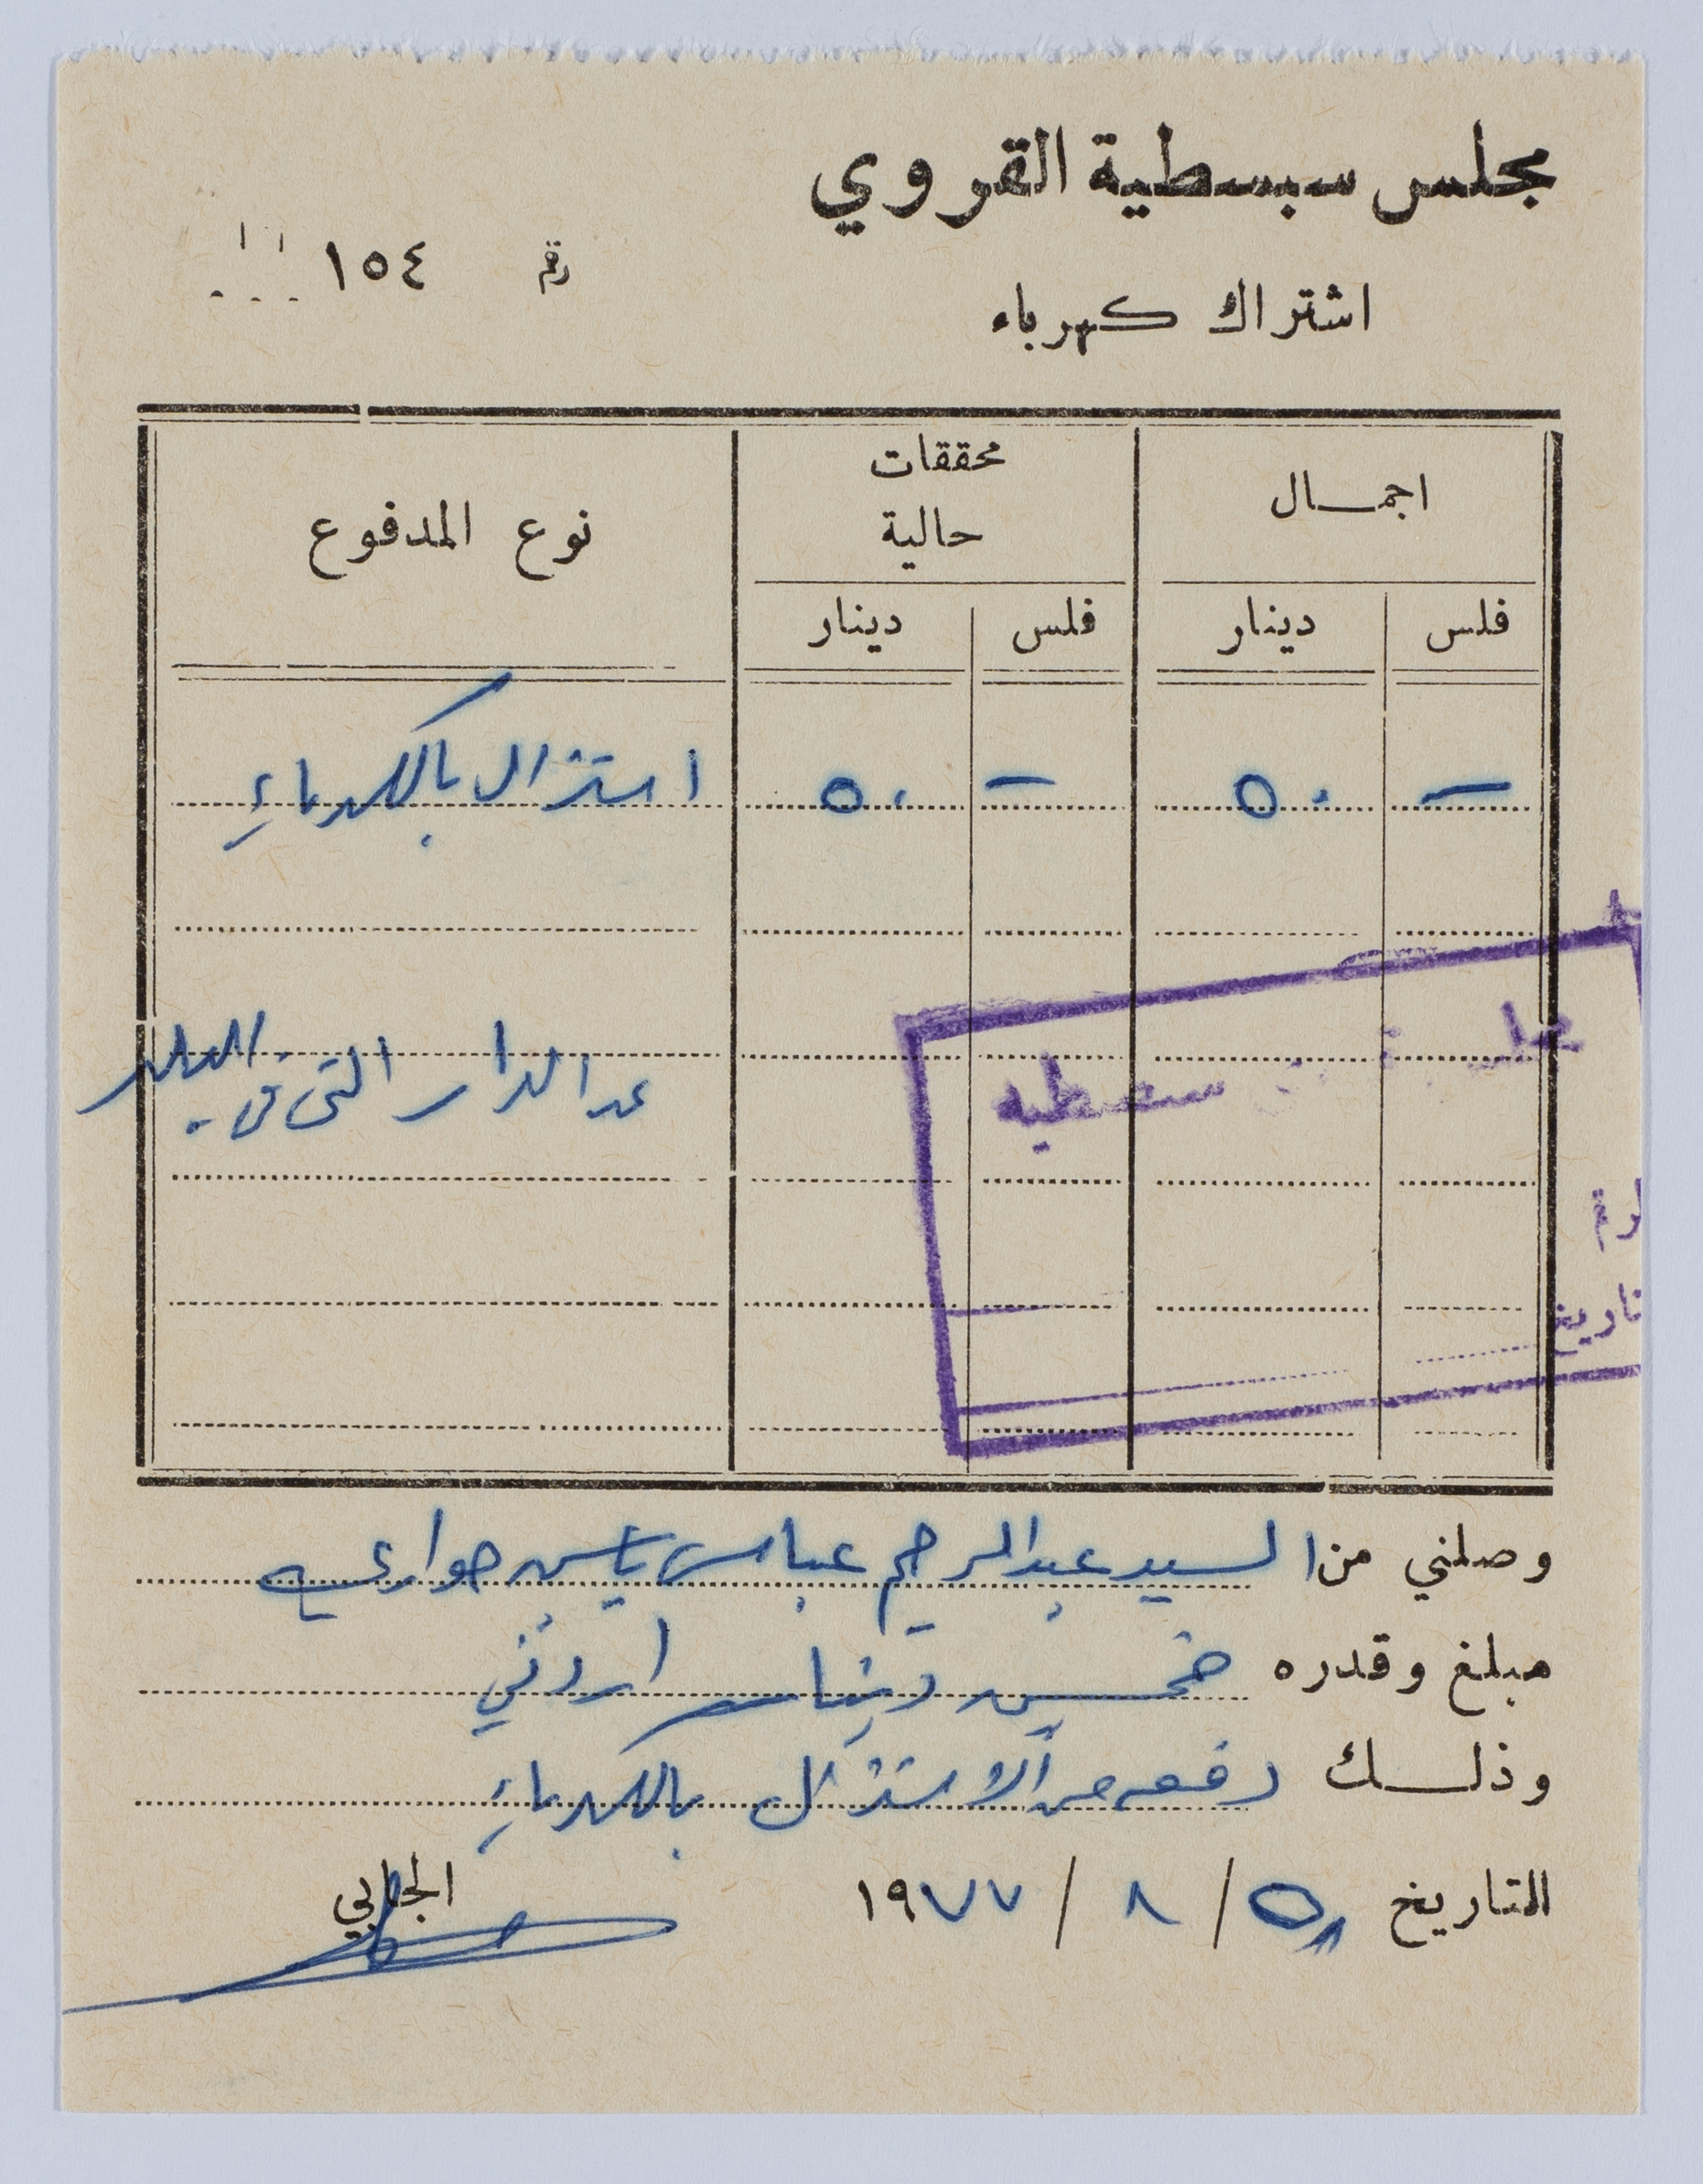 مجلس سبسطية القروي
رقم ١٥٤
اشتراك كهرباء
اجمال
محققات حالية
نوع المدفوع
فلس دينار فلس دينار
— ٥٠ — ٥٠ اشتراك بالكهرباء
سبسطيه
عن الدار التي في البلد
تاريخ
وصلني من السيد عبد الرحيم عباس ياسين
مبلغ وقدره خمسين دينار اردني
وذلك دفعه من الاشتراك بالكهرباء
التاريخ / ٨ / ١٩٧٧
الجابي